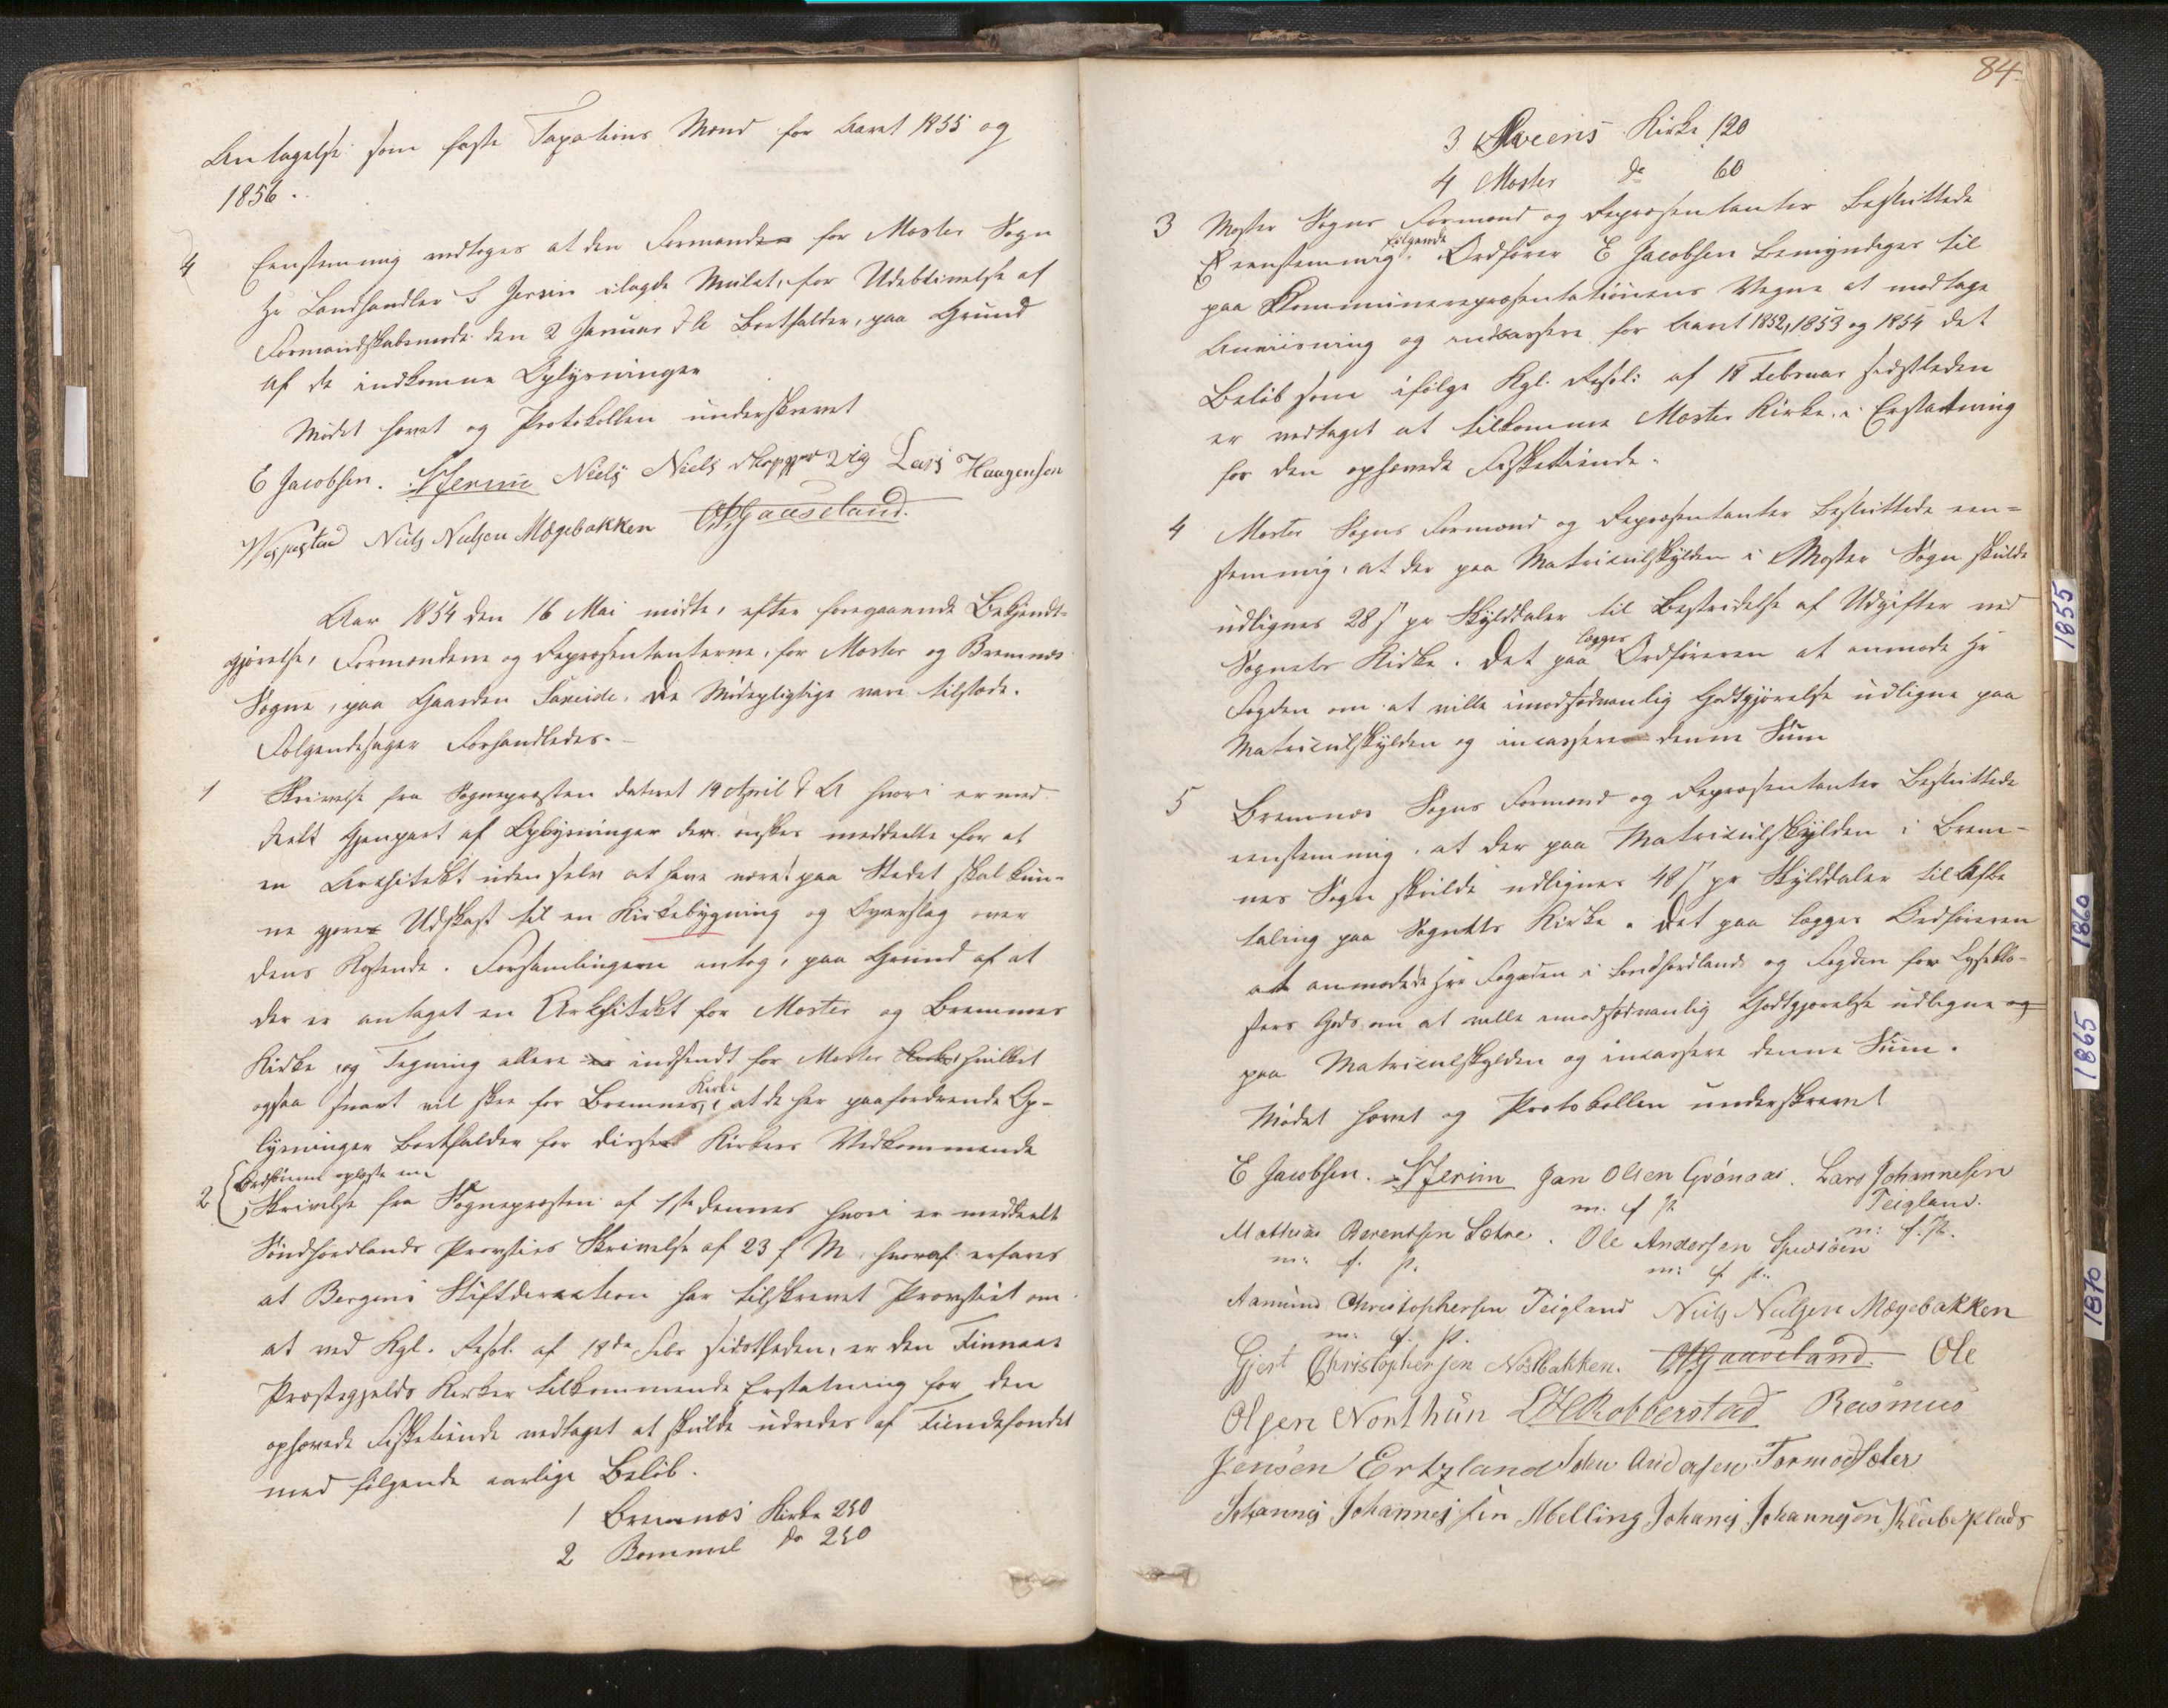 Antagelse som faste Taxations Mænd for Aaret 1855 og
1856.
4 Eenstemmig vedtoges at den Formanden for Moster Sogn
Hr Landhandler S Jersin ilagde Mulct, for Udeblivelse af
Formandskabsmøde den 2 Januar d A bortfalder, paa Grund
af de indkomne Oplysninger
Mødet hævet og Protokollen underskrevet
E Jacobsen. S Jersin Niels Niels Mopper Vig Lars Haagensen
Niels Nielsen Mægebakken O Gaaseland.
Aar 1854 den 16 Mai mødte, efter foregaaende Bekjendt-
gjørelse, Formændene og Repræsentanterne, for Moster og Bremnes
Sogne, paa Gaarden Laneide. De Mødepligtige vare tilstæde.
Følgende sager Forhandledes.
1 Skrivelse fra Sognepræsten dateret 19 April d A hvori er med
deelt Gjenpart af Oplysninger der ønskes meddeelte for at
en Architekt uden selv at have været paa Stedet skal kun-
ne gjøre Udkast til en Kirkebygning og Overslag over
dens Kostende. Forsamlingen antog, paa Grund af at
der er antaget en Architekt for Moster og Bremnes
Kirke og Tegning allere er indsendt for Moster Kirke, hvilket
ogsaa snart vil skee for Bremnes, Kirke at de her paafordrende Op-
lysninger bortfalder for disse Kirkers Vedkommende
2 Ordføreren oplæste en
Skrivelse fra Sognepræsten af 1ste dennes hvori er meddeelt
Søndhordlands Provsties Skrivelse af 23 f M hvoraf erfares
at Bergens Stiftdirection har tilskrevet Provstiet om
at ved Kgl. Resol. af 18de Febr sidstleden, er den Finnaas
Prestegjelds Kirker tilkommende Erstatning for den
ophævede Fisketiende vedtaget at skulde udredes af Tiendefondet
med følgende aarlige Beløb.
1 Bremnæs Kirke 240
2 Bømmel do 240
84
3 Kirke 120
4 Moster do 60
3 Moster Sogns Formænd og Repræsentanter Besluttede
eenstemmig følgende Ordfører E Jacobsen bemyndiges til
paa Kommunerepræsentationens Vegne at modtage
Anviisning og indkassere for Aaret 1852, 1853 og 1854 det
Beløb som ifølge Kgl. Resol: af 18 Februar sidstleden
er vedtaget at tilkomme Moster Kirke i Erstatning
for den ophævede Fisketiende.
4 Moster Sogns Formænd og Repræsentanter Besluttede een-
stemmig, at der paa Matriculskylden i Moster Sogn skulde
udlignes 28 s pr Skylddaler til Bestridelse af Udgifter ved
Sognets Kirke. Det paa lægges Ordføreren at anmode Hr
Fogden om at ville imod sædvanlig Godtgjørelse udligne paa
Matriculskylden og incassere denne Sum
5 Bremnæs Sogns Formænd og Repræsentanter Besluttede
eenstemmig, at der paa Matriculskylden i Brem-
nes Sogn skulde udlignes 48 s pr Skylddaler til Afbe
taling paa Sognets Kirke. Det paa lægges Ordføreren
at anmodede Hrr Fogden i Søndhordland og Fogden for Lyseklo-
sters Gods om at ville imod sædvanlig Godtgjørelse udligne og
paa Matriculskylden og incassere denne Sum.
Mødet hævet og Protokollen underskrevet
E Jacobsen. S Jersin Jan Olsen Grønaas. Lars Johannesen
m. f P Teigland.
Mathias Berentsen Sætre. Ole Andersen m: f. P.
m: f. P. m: f P.
Aamund Christophersen Teigland Niels Nielsen Mægebakken
m: f. P.
Gjert Christophersen Nøstbakken. O Gaaseland. Ole
Olsen Northun L H Robberstad Rasmus
Jensen Ertzland John Andersen Tormodsæter
Johannes Johannessen Melling Johans Johannesen Klubsplads
1855
1860
1865
1870